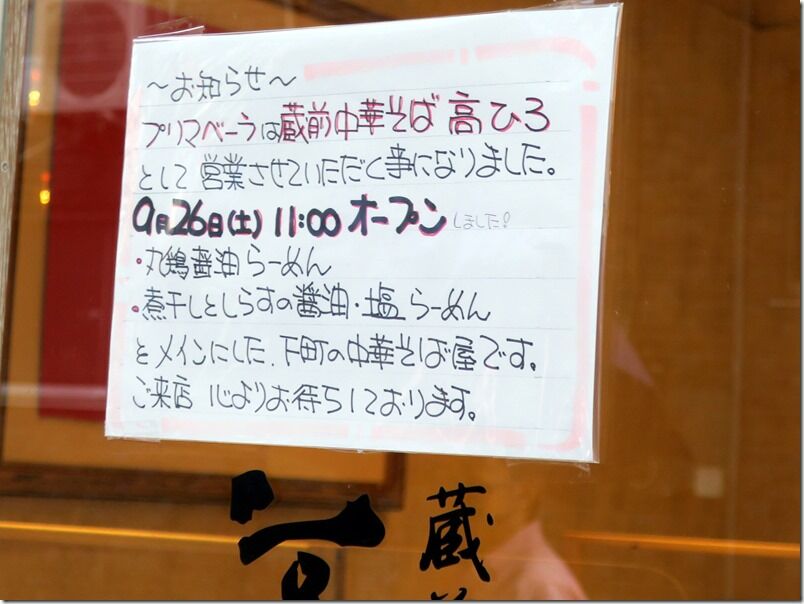 ～お知らせ～
プリマベーラは蔵前中華そば 髙ひろ
として 営業させていただく事になりました。
9月26日(土) 11:00 オープン しました!
・丸鶏醤油らーめん
・煮干しとしらすの醤油・塩らーめん
をメインにした、下町の中華そば屋です。
ご来店 心よりお待ちしております。
蔵